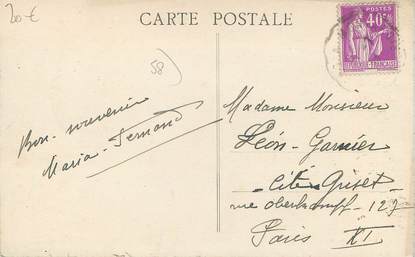 20 €
CARTE POSTALE
58
POSTES
40c
REPUBLIQUE FRANÇAISE
Bon souvenir
Maria - Fernand
Madame Monsieur
Léon Garnier
cité Griset
rue oberkampf - 127
Paris XI